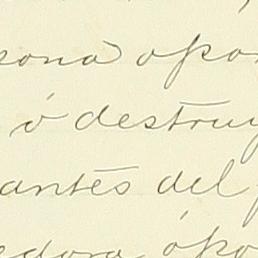 sona ópor
ó destruy
antés del p
edora, ópo